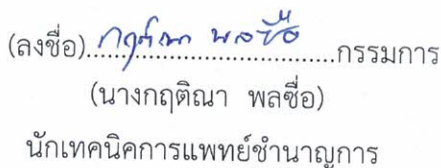 (ลงชื่อ)กฤติณา พลซื่อ.................................กรรมการ
(นางกฤติณา พลซื่อ)
นักเทคนิคการแพทย์ชำนาญการ